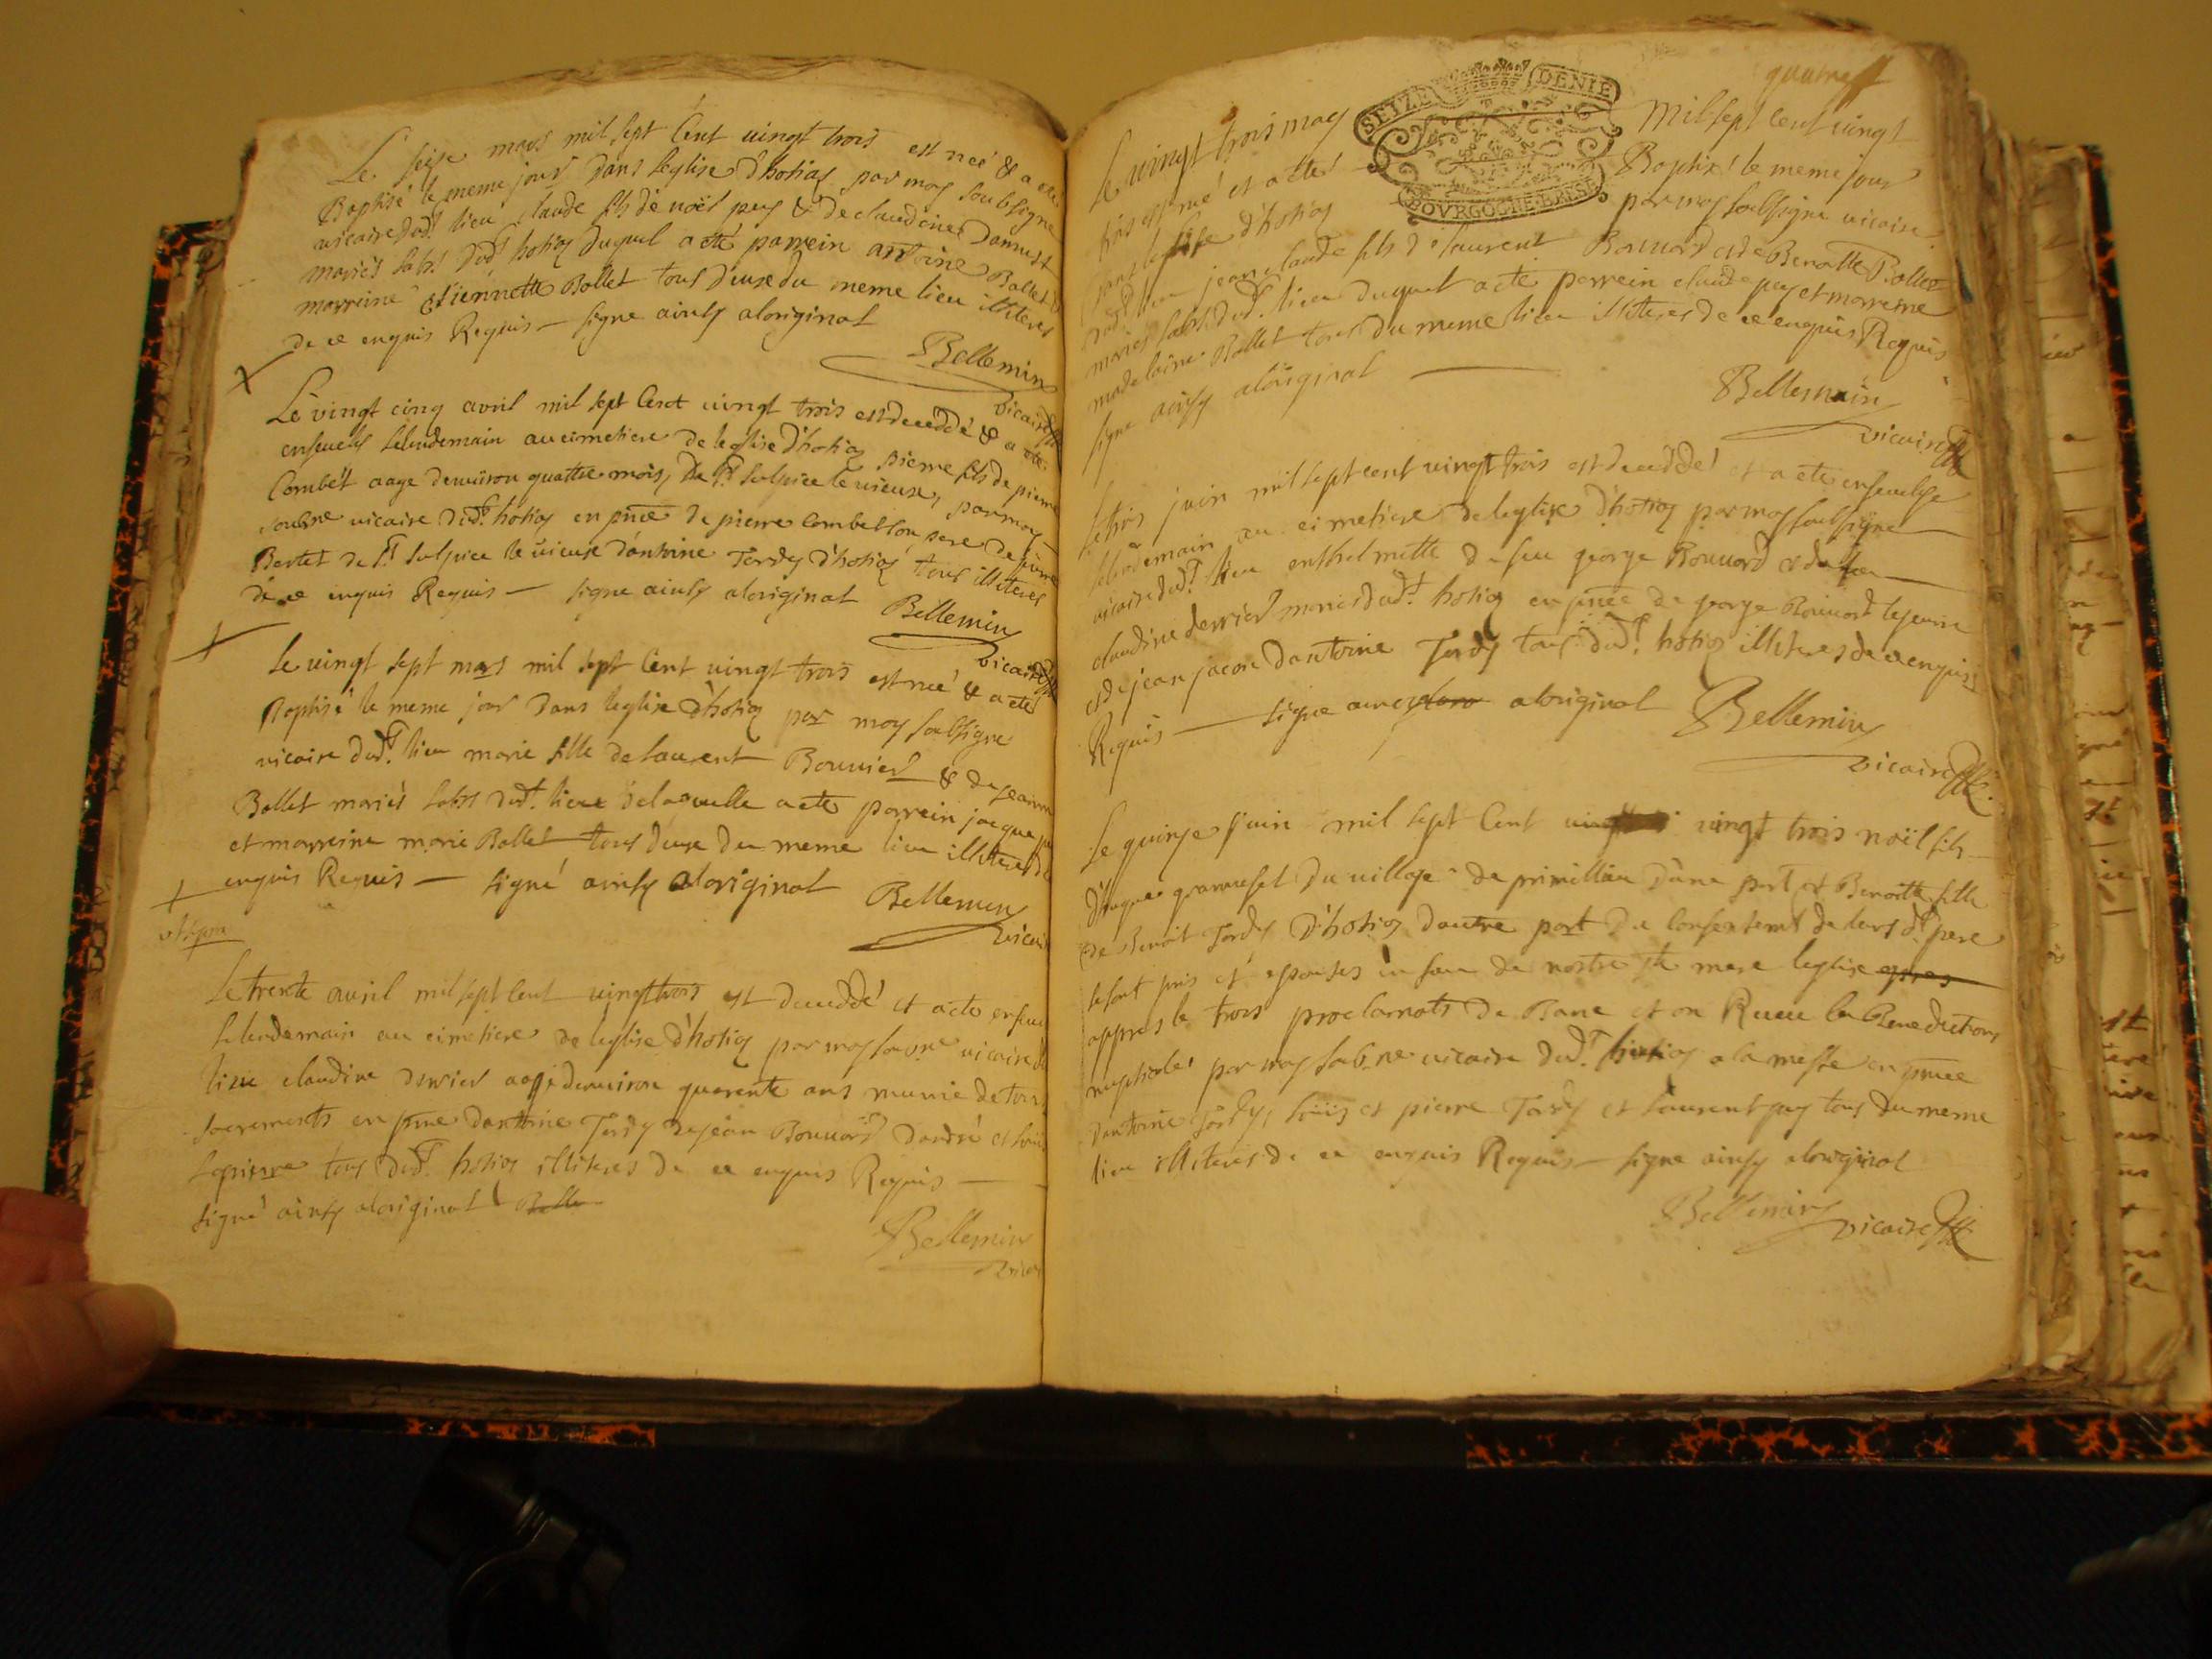 Le seize mars mil sept Cent vingt trois est neé & a eté
Baptisé le meme jour dans leglise d'hotiag par moy soubsigne
vicaire dudt lieu claude fils de noël puy & de claudine Dannest
mariés habts dudt hotiag duquel a eté parrein antoine Ballet &
marreine etiennette Ballet tous deux du meme lieu illiteres
de ce enquis Requis — signe ainsy aloriginal
Bellemin
vicaire
Le vingt cinq avril mil sept Cent vingt trois est deceddé & a eté
ensevely lelendemain au cimetiere de leglise d'hotiag pierre fils de pierre
Combet aage denviron quattre mois, de St sulpice le vieux, par moy
soubsne vicaire dudt hotiag en pnce de pierre Combet son pere de pierre
Bertet de St sulpice le vieux d'antoine Tardy d'hotiag tous illiteres
de ce enquis Requis — signe ainsy aloriginal
Bellemin
vicaire
Le vingt sept mars mil sept Cent vingt trois est neé & a eté
Baptisé le meme jour dans leglise d'hotiag par moy soubsigne
vicaire dudt lieu marie fille de laurent Bouvier & de jeanne
Ballet mariés habts dudt lieu delaquelle a eté parrein jacque
et marreine marie Ballet tous deux du meme lieu illiteres de
enquis Requis — signé ainsy aloriginal
Bellemin
vicai
Le trente avril mil sept Cent vingt trois est deceddé et a eté ensev
lelendemain au cimetiere de leglise d'hotiag par moy soubne vicaire du
lieu claudine dervier aagé denviron quarente ans munie de tous
sacrements en pnce dantoine Tardy de jean Bouvard dandré et loüis
lapierre tous dudt hotiag illiteres de ce enquis Requis —
signé ainsy aloriginal Belle
Bellemin
vicai
quatre
SEIZE DENIE
BOVRGOGNE·BRESSE
Le vingt trois may mil sept Cent vingt
trois est né et a eté Baptisé le meme jour
dans leglise d'hotiag par moy soubsigne vicaire
dudt lieu jean claude fils de laurent Bouvard et de Benoitte Ballet
mariés habts dudt lieu duquel a eté parrein claude puy et marreine
madelaine Ballet tous du meme lieu illiteres de ce enquis Requis
signe ainsy aloriginal —
Bellemin
vicaire
Le trois juin mil sept cent vingt trois est deceddé et a eté ensevelye
lelendemain au cimetiere de leglise d'hotiag par moy soubsigne
vicaire dudt lieu enthelmette de feu george Bouvard et de feu —
claudine dervier mariés dudt hotiag en pnce de george Bouvard lejeune
et de jean jacon dantoine Tardy tous dudt hotiag illiteres de ce enquis
Requis — signe ainsy aloriginal
Bellemin
vicaire
Le quinze juin mil sept Cent vingt trois noël fils
d'hugue gramuset du village de primillieu d'une part & Benoitte fille
de Benoit Tardy d'hotiag dautre part du consentemt de leurs dt pere
se sont pris et epouses en face de nostre ste mere leglise
appres le trois proclamats de Banc et on Receu la Benediction
nuptiale par moy soubne vicaire dudt hotiag a la messe en pnce
dantoine Tardy, loüis et pierre Tardy et laurent puy tous du meme
lieu illiteres de ce enquis Requis — signe ainsy aloriginal
Bellemin
vicaire